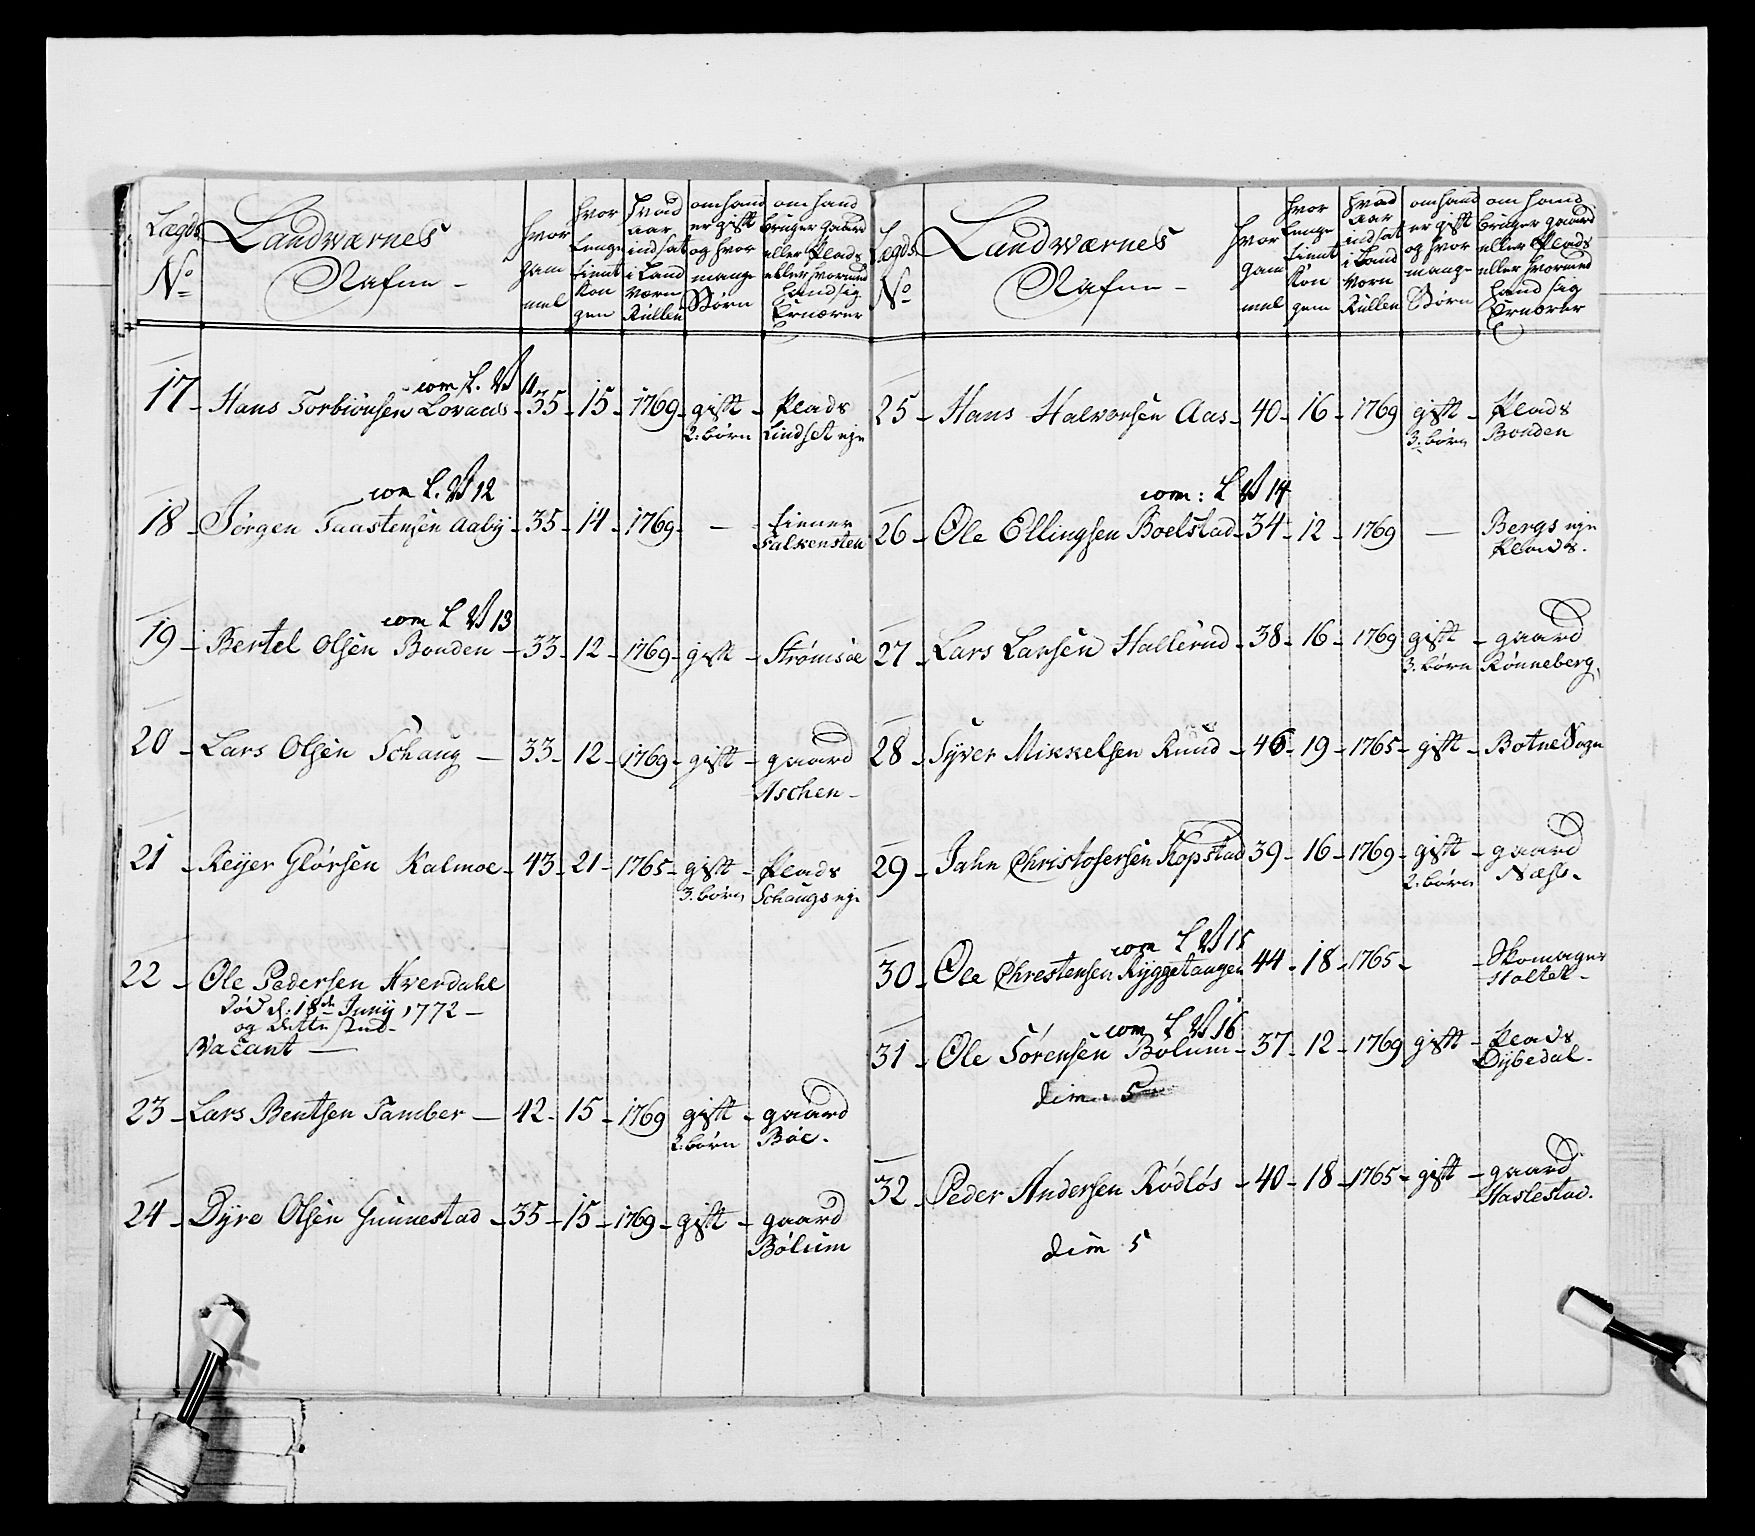 Lægds No
Landwærnes Nafne
hvor gam mel
hvor lenge tient Kon gen
hvad aar indsat i Land værn Rullen
om hand er gift og hvor mange Børn
om hand bruger gaard eller Plads eller hvormed hand sig Ernærer
com L. W 11
17 - Hans Torbiönsen Lovaas - 35 - 15 - 1769 - gift 2: börn - Plads Lindset eje
com L. W 12
18 - Jörgen Taastensen Aaby - 35 - 14 - 1769 - — - tiener Falkensten
com L W 13
19 - Bertel Olsen Bonden - 33 - 12 - 1769 - gift - Strömsöe
20 - Lars Olsen Schaug - 33 - 12 - 1769 - gift - gaard Aschen -
21 - Reyer Glörsen Kalmoe - 43 - 21 - 1765 - gift 3. börn - Plads Schaugs eje
22 - Ole Pedersen Hverdahl
död d: 18de Juny 1772 -
og dette sted
Vacant —
23 - Lars Bentsen Tamber - 42 - 15 - 1769 gift 2: börn - gaard Böe -
24 - Dyre Olsen Gunnestad - 35 - 15 - 1769 - gift - gaard Bölum
Lægds No
Landwærnes Nafne -
hvor gam mel
hvor lenge tient Kon gem
hvad aar indsat i Land Værn Rullen
om hand er gift og hvor mange Börn
om hand bruger gaard eller Plads eller hvormed hand sig Ernærer
25 - Hans Halvorsen Aas - 40 - 16 - 1769 gift 3. börn - Plads Bonden
com: L W 14
26 - Ole Ellingsen Boelstad - 34 - 12 - 1769 — Bergs eje Plads.
27 - Lars Larsen Hallerud - 38 - 16 - 1769 gift 3. börn - gaard Rönneberg
28 - Syver Mikkelsen Ruud - 46 - 19 - 1765 - gift - Botne Sogn
29 - Jahn Christofersen Kopstad 39 - 16 - 1769 - gift 2. börn - gaard Næss -
com L W 15
30 - Ole Chrestensen Ryggetangen 44 - 18 - 1765 - - Skomager Holtet -
com L W 16
31 - Ole Sörensen Bolum - 37 - 12 - 1769 gift - Plads Dybedal -
dim. 5
32 - Peder Andersen Rödlös - 40 - 18 - 1765 - gift - gaard Haslestad.
dim 5